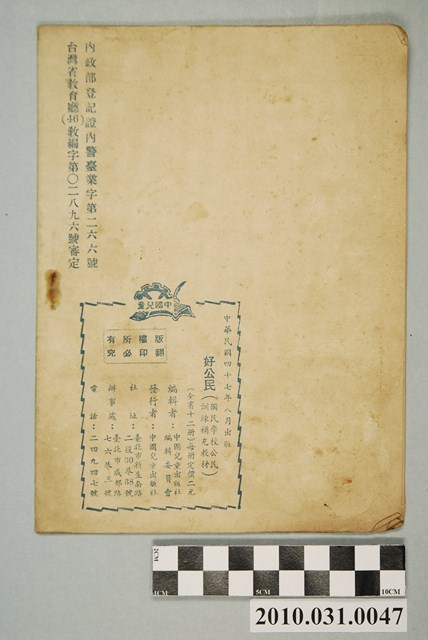 內政部登記證內警臺業字第二六六號
台灣省教育廳(46)教編字第〇二八九六號審定
中國兒童
版權所有
翻印必究
中華民國四十七年八月出版
好公民(國民學校公民訓練補充教材)
(全書十二冊)每冊定價二元
編輯者:中國兒童出版社編輯委員會
發行者:中國兒童出版社
社址:臺北市新生南路二段30巷38號
辦事處:臺北市成都路七六巷三號
電話:二四九四七號
2CM
1CM
5CM
10CM
2010.031.0047